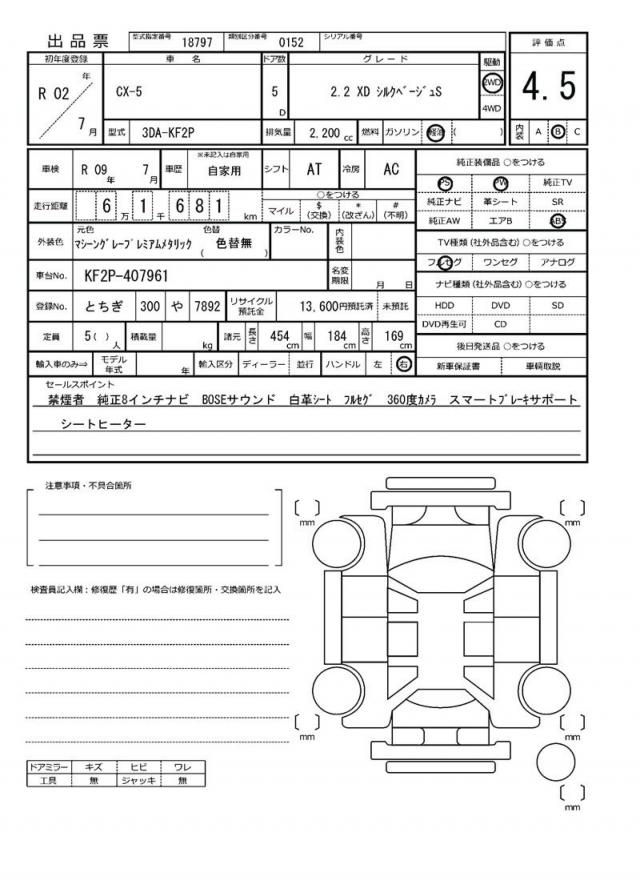 出品票 型式指定番号 18797 類別区分番号 0152 シリアル番号
初年度登録 車名 ドア数 グレード 駆動 評価点
R 02 年 7 月 CX-5 5 D 2.2 XD シルクベージュS 2WD 4WD 4.5
型式 3DA-KF2P 排気量 2,200 cc 燃料 ガソリン 軽油 ( ) 内装 A B C
車検 R 09 年 7 月 車歴 ※未記入は自家用 自家用 シフト AT 冷房 AC 純正装備品 ○をつける
PS PW 純正TV
走行距離 6 万 1 千 6 8 1 km ○をつける
マイル $ (交換) * (改ざん) # (不明)
純正ナビ 革シート SR
純正AW エアB ABS
外装色 元色 マシーングレープレミアムメタリック 色替 ( 色替無 ) カラーNo. 内装色
TV種類 (社外品含む) ○をつける
フルセグ ワンセグ アナログ
車台No. KF2P-407961 名変期限 月 日
ナビ種類 (社外品含む) ○をつける
登録No. とちぎ 300 や 7892 リサイクル預託金 13,600円預託済 未預託
HDD DVD SD
DVD再生可 CD
定員 5( ) 人 積載量 kg 諸元 長さ 454 cm 幅 184 cm 高さ 169 cm
後日発送品 ○をつける
輸入車のみ⇒ モデル年式 年 輸入区分 ディーラー 並行 ハンドル 左 右
新車保証書 車輌取説
セールスポイント
禁煙者 純正8インチナビ BOSEサウンド 白革シート フルセグ 360度カメラ スマートブレーキサポート
シートヒーター
注意事項・不具合箇所
検査員記入欄：修復歴「有」の場合は修復箇所・交換箇所を記入
mm
mm
mm
mm
mm
ドアミラー キズ ヒビ ワレ
工具 無 ジャッキ 無